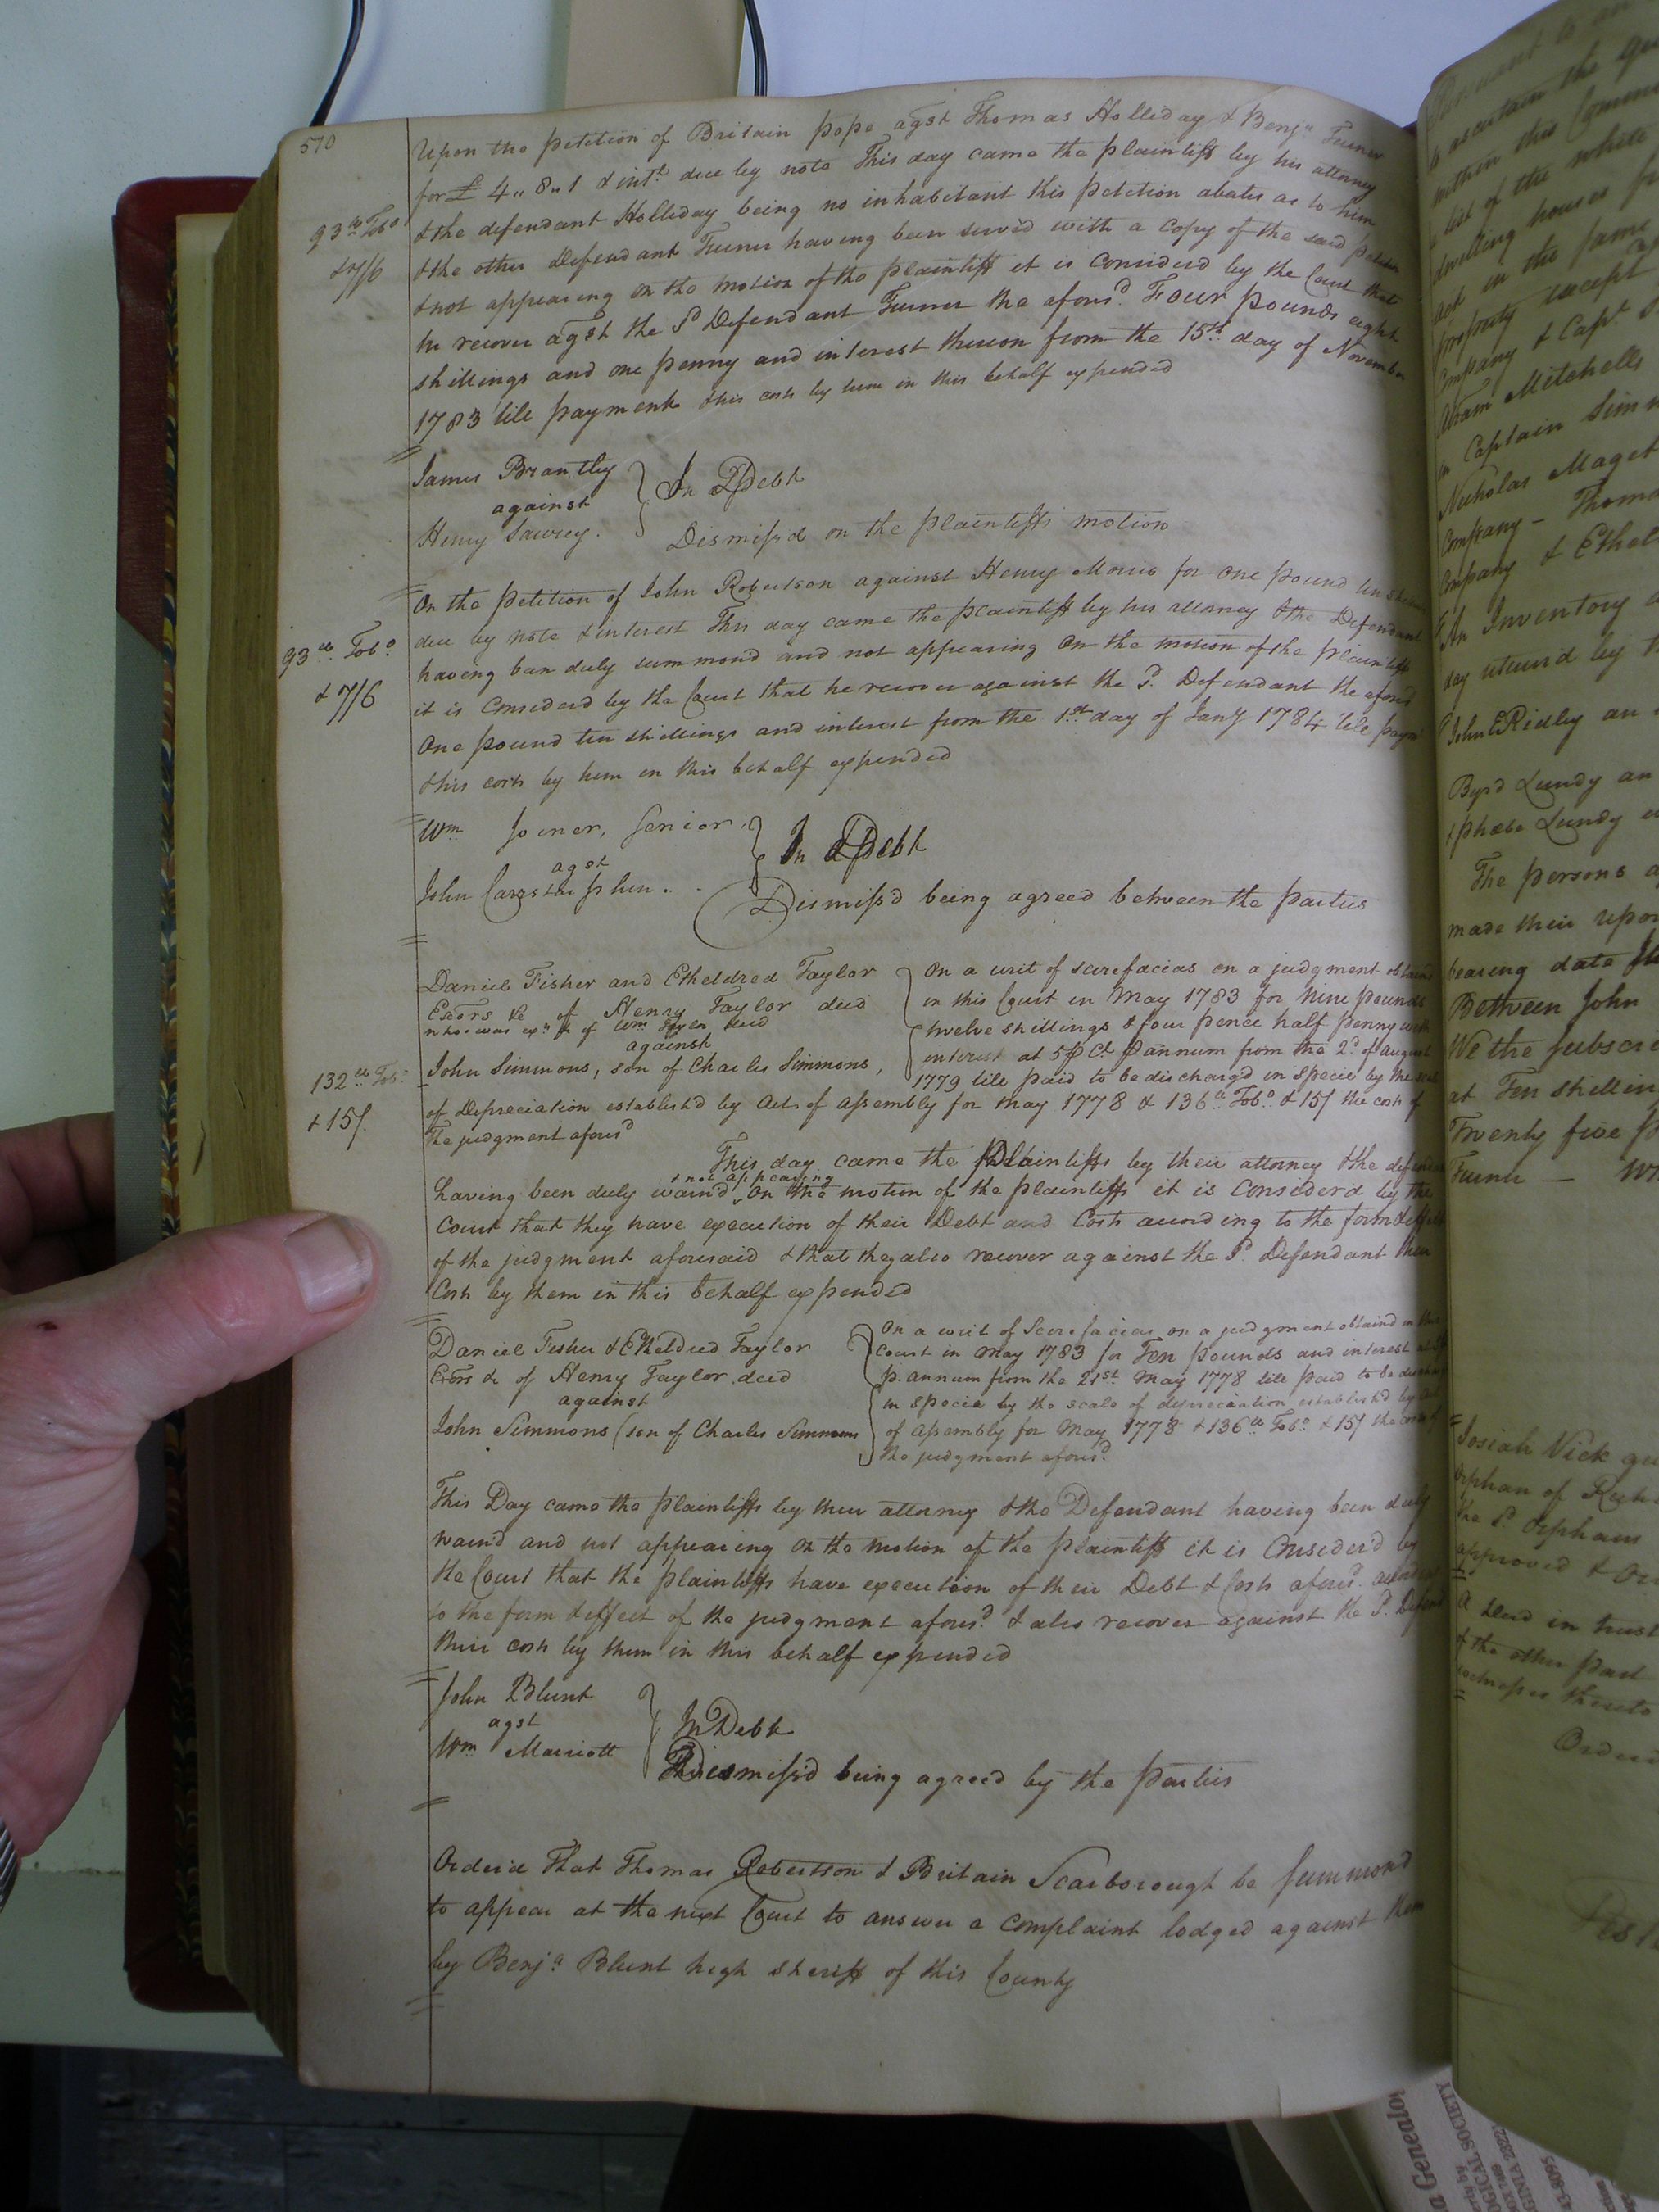 570
Upon the petition of Britain pope agst Thomas Holliday & Benjn Turner
for £ 4,, 8,, 1 & intt due by note This day came the plaintiff by his attorney
93 lb Tobo
& the defendant Holliday being no inhabitant this petition abates as to him
& 7/6
& the other Defendant Turner having been served with a Copy of the said petition
& not appearing on the motion of the plaintiff it is Considerd by the Court that
he recover agst the Sd Defendant Turner the aforesd Four pounds eight
shillings and one penny and interest thereon from the 15th day of November
1783 till payment & his costs by him in this behalf expended
James Brantley
against
In Debt
Henry
Dismissd on the plaintiffs motion
On the petition of John Robertson against Henry Morris for one pound ten
due by note & interest This day came the plaintiff by his attorney & the Defendant
93 lb Tobo
having ben duly summond and not appearing On the motion of the plaintiff
& 7/6
it is Considerd by the Court that he recover against the Sd Defendant the afores
One pound ten shillings and interest from the 1st day of Jany 1784 till
& his costs by him in this behalf expended
Wm Joiner, Senior
agst
In Debt
John
Dismissd being agreed between the parties
Daniel Fisher and Etheldred Taylor
Exors &c of Henry Taylor decd
who was exr &c of Wm decd
against
John Simmons, son of Charles Simmons,
On a writ of scirefacias on a judgment
in this Court in May 1783 for Nine pounds
twelve shillings & four pence half penny with
interest at 5 P Ct P annum from the 2d of august
132 lb Tobo
1779 till paid to be dischargd in specie by the
& 15/.
of Depreciation establishd by Act of assembly for May 1778 & 136 lb Tobo & 15/ the costs of
The judgment aforesd
This day came the Plaintiffs by their attorney & the
& not appearing
having been duly warnd On the motion of the plaintiffs it is Considerd by the
Court that they have execution of their Debt and Costs according to the form &
of the judgment aforesaid & that they also recover against the Sd Defendant their
Costs by them in this behalf expended
Daniel Fisher & Etheldred Taylor
Exors &c of Henry Taylor decd
against
John Simmons (son of Charles Simmons
On a writ of Scirefacias on a judgment obtaind in this
Court in May 1783 for Ten pounds and interest
p. annum from the 21st May 1778 till paid to be
in specie by the scale of depreciation establishd by
of assembly for May 1778 & 136 lb Tobo & 15/ the costs of
the judgment aforesd
This Day came the plaintiffs by their attorney & the Defendant having been duly
warnd and not appearing On the motion of the plaintiff it is Considerd by
the Court that the plaintiffs have execution of their Debt & Costs aforesd
to the form & effect of the judgment aforesd & also recover against the Sd
their costs by them in this behalf expended
John Blunt
agst
In Debt
Wm Marriott
Dismissd being agreed by the parties
Orderd That Thomas Robertson & Britain Scarborough be Summond
to appear at the next Court to answer a complaint lodged against them
by Benja Blunt high sheriff of this County
within this
a list of the while
dwelling houses
act in the same
property except
Company & Capt
Abram Mitchells
in Captain
Nicholas Maget
Company – Thoma
Company & Ethel
An Inventory
day returnd by
John E Ridley an
Byrd Lundy an
& phebe Lundy
The persons
made their repor
bearing date
Between John
We the subscri
at Ten shillin
Twenty five
Turner –
Josiah Vick
orphan of
the sd orphans
approved & Or
A Deed in trust
of the other part
witnesses thereto
Orderd
a Genealog
GICAL SOCIETY